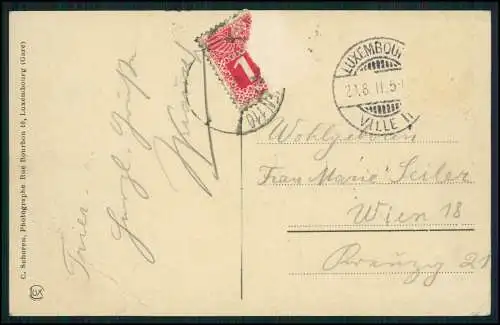 C. Schoren, Photographe Rue Bourbon 18, Luxembourg (Gare)
Trier -
Herzl. Grüße
1
LUXEMBOURG
21.8.11.5-
VILLE
Wohlgeboren
Frau Marie Seiler
Wien 18
Kreuzg 21